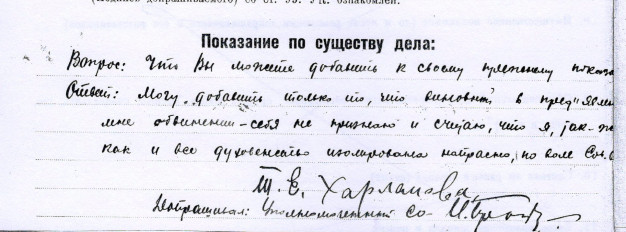 (подпись допрашиваемого) со ст. 95. УК. ознакомлен.
Показание по существу дела:
Вопрос: Что Вы можете добавить к своему прежнему показа
Ответ: Могу добавить только то, что виновной в пред"явлен
мне обвинении - себя не признаю и считаю, что я, так-же
как и все духовенство изолирована напрасно, по воле Сов.
Т. Е. Харламова
Допрашивал: Уполномоченный СО